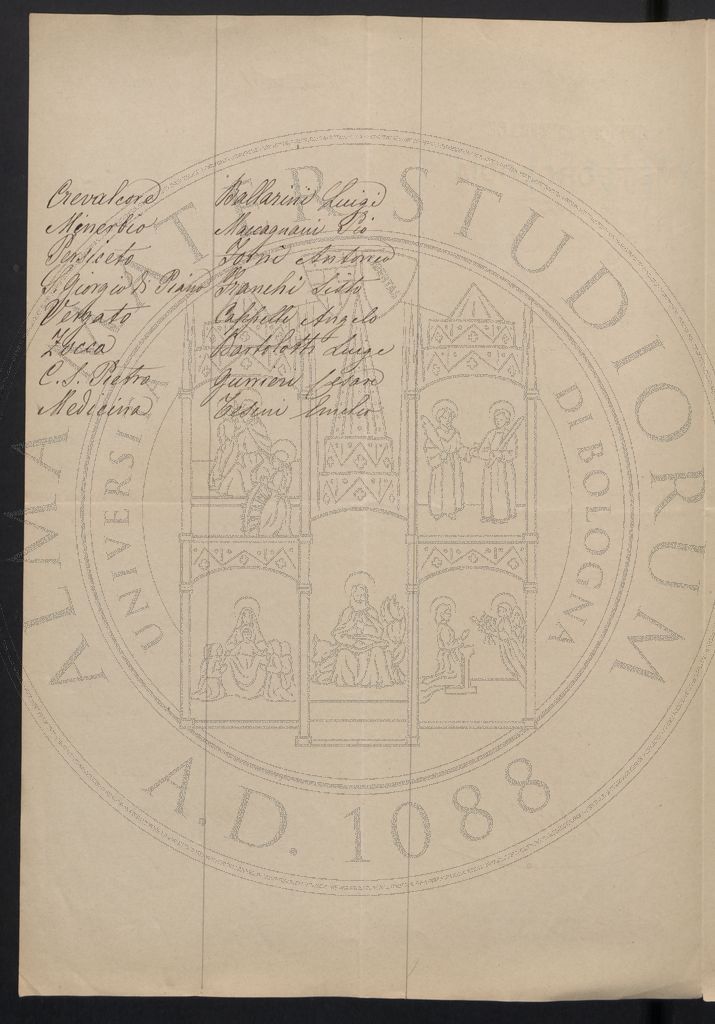 Crevalcore Ballarini Luigi
Minerbio Maccagnani Pio
Persiceto Forni Antonio
S. Giorgio di Piano Franchi Sisto
Vergato Cappelli Angelo
Zocca Bartolotti Luigi
C. S. Pietro Gurrieri Cesare
Medicina Tesini Emilio
ALMA MATER STUDIORUM
UNIVERSITÀ DI BOLOGNA
A.D. 1088